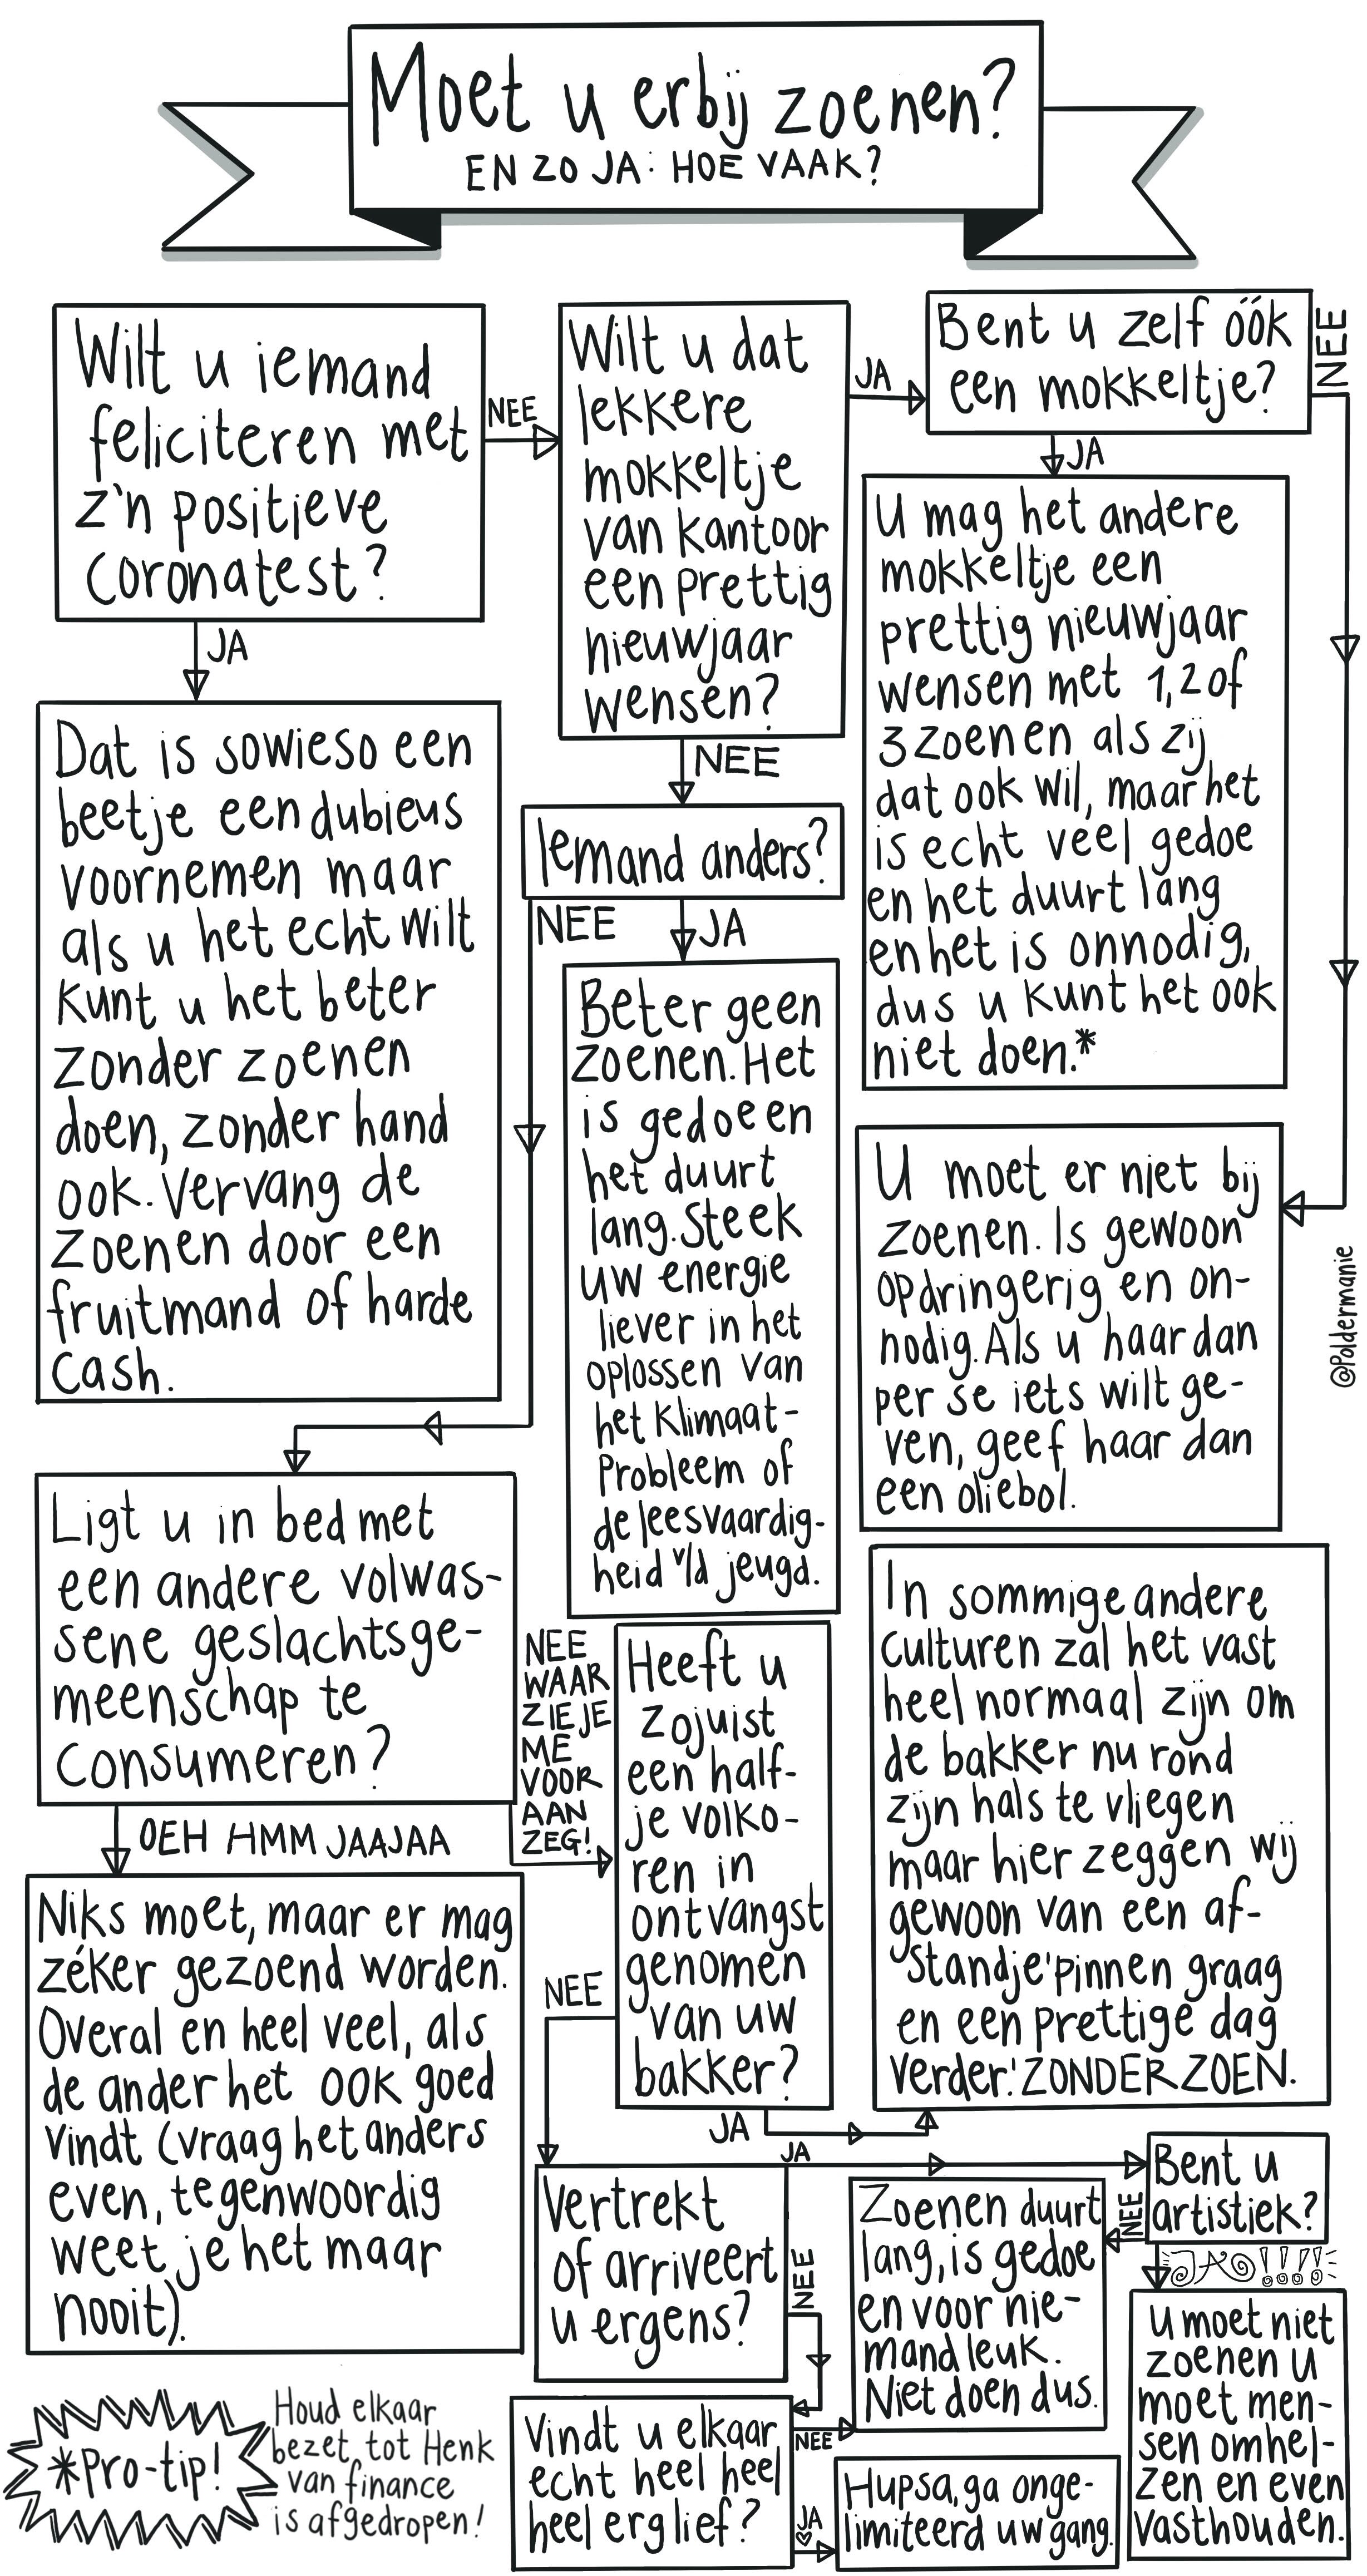 Moet u erbij zoenen?
EN ZO JA: HOE VAAK?
Wilt u iemand
feliciteren met
z'n positieve
coronatest?
NEE
JA
Wilt u dat
lekkere
mokkeltje
van kantoor
een prettig
nieuwjaar
wensen?
JA
NEE
Bent u zelf óók
een mokkeltje?
NEE
JA
U mag het andere
mokkeltje een
prettig nieuwjaar
wensen met 1,2 of
3 zoenen als zij
dat ook wil, maar het
is echt veel gedoe
en het duurt lang
en het is onnodig,
dus u kunt het ook
niet doen.*
Dat is sowieso een
beetje een dubieus
voornemen maar
als u het echt wilt
kunt u het beter
zonder zoenen
doen, zonder hand
ook. Vervang de
zoenen door een
fruitmand of harde
cash.
Iemand anders?
NEE
JA
Beter geen
zoenen. Het
is gedoe en
het duurt
lang. Steek
uw energie
liever in het
oplossen van
het klimaat-
probleem of
de leesvaardig-
heid v/d jeugd.
U moet er niet bij
zoenen. Is gewoon
opdringerig en on-
nodig. Als u haar dan
per se iets wilt ge-
ven, geef haar dan
een oliebol.
@Poldermanie
Ligt u in bed met
een andere volwas-
sene geslachtsge-
meenschap te
consumeren?
NEE
WAAR
ZIE JE
ME
VOOR
AAN
ZEG!
OEH HMM JAAJAA
Niks moet, maar er mag
zéker gezoend worden.
Overal en heel veel, als
de ander het OOK goed
vindt (vraag het anders
even, tegenwoordig
weet je het maar
nooit).
Heeft u
zojuist
een half-
je volko-
ren in
ontvangst
genomen
van uw
bakker?
NEE
JA
In sommige andere
culturen zal het vast
heel normaal zijn om
de bakker nu rond
zijn hals te vliegen
maar hier zeggen wij
gewoon van een af-
standje 'pinnen graag
en een prettige dag
verder.' ZONDER ZOEN.
Vertrekt
of arriveert
u ergens?
JA
NEE
Bent u
artistiek?
NEE
JA!!!!
Zoenen duurt
lang, is gedoe
en voor nie-
mand leuk.
Niet doen dus.
U moet niet
zoenen U
moet men-
sen omhel-
zen en even
vasthouden.
Vindt u elkaar
echt heel heel
heel erg lief?
NEE
JA
Hupsa, ga onge-
limiteerd uw gang.
*Pro-tip!
Houd elkaar
bezet tot Henk
van finance
is afgedropen!